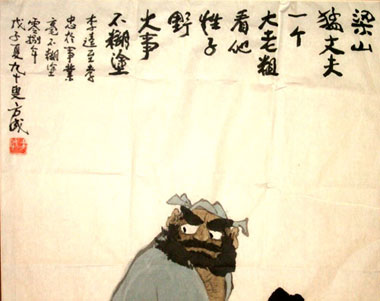 梁山
猛丈夫
一个
大老粗
看他
性子
野
大事
不糊塗
李逵至孝
忠於事業
毫不糊塗
零捌年
戊子夏九十叟方成